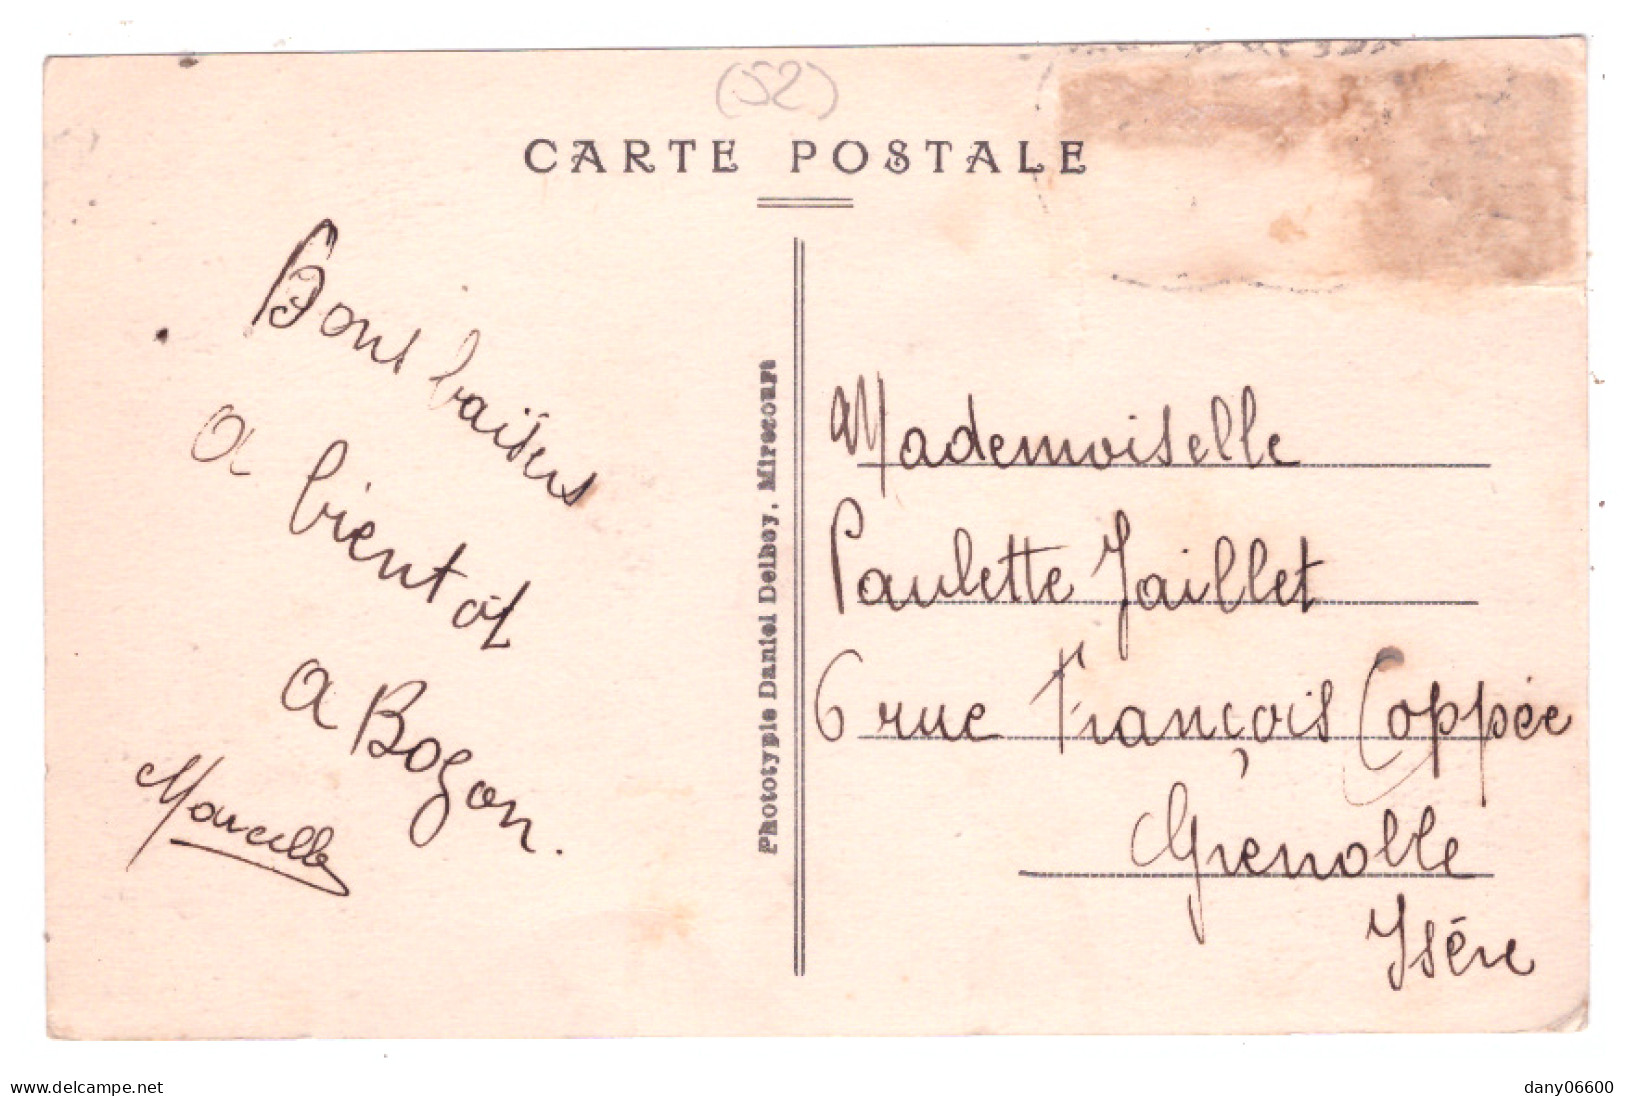 (52)
CARTE POSTALE
Bons baisers
a bientot
a Bozon.
Marcelle
Phototypie Daniel Delboy, Mirecourt
Mademoiselle
Paulette Jaillet
6 rue François Coppée
Grenoble
Isère
www.delcampe.net
dany06600